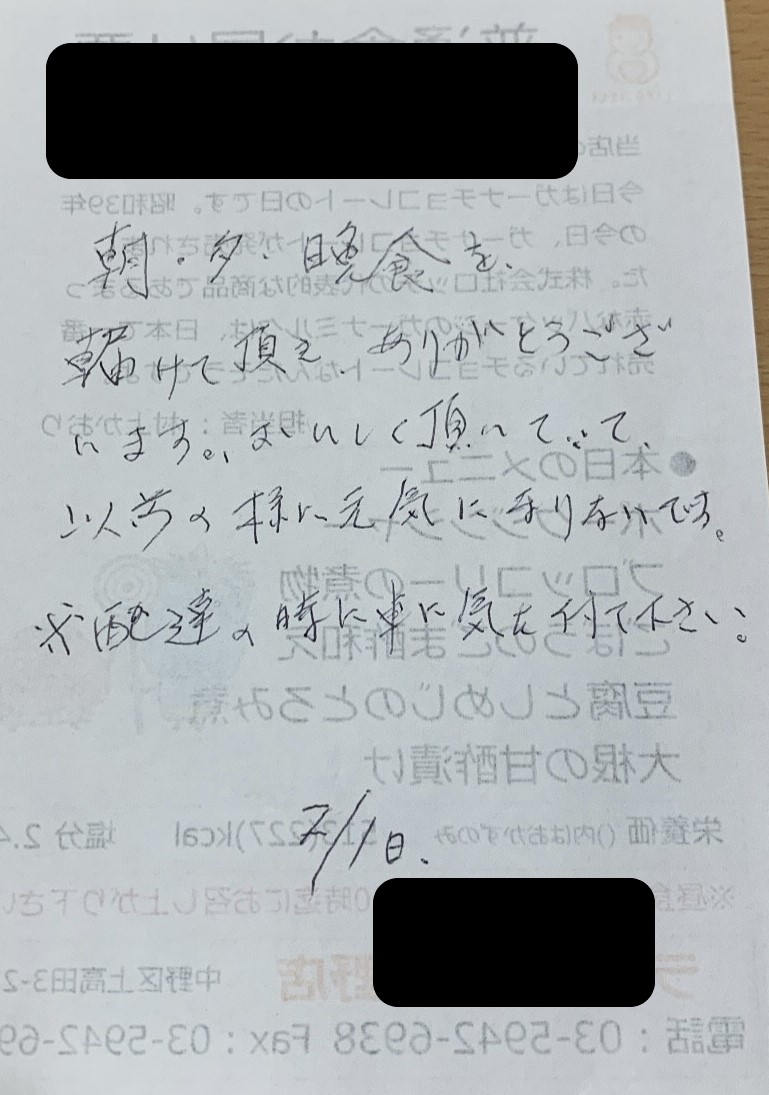 朝・夕・晩食を、
届けて頂き、ありがとうござ
います。、おいしく頂いていて、
以前の様に元気になりたいです。
※配達の時に車に気を付て下さい。
7/1日、
当店
今日はガーナチョコレートの日です。昭和39年
の今日、ガーナチョコレートが発売されまし
た。株式会社ロッテの代表的な商品であるまっ
売れているチョコレートなんだそうですよ。
担当者：村上かおり
●本日のメニュー
ブロッコリーの煮物
ごぼうのごま酢和え
豆腐としめじのとろみ煮
大根の甘酢漬け
栄養価 ()内はおかずのみ 513(227)kcal 塩分 2.4
0時迄にお召し上がり下さい
野店 中野区上高田3-2
電話：03-5942-6938 Fax：03-5942-69